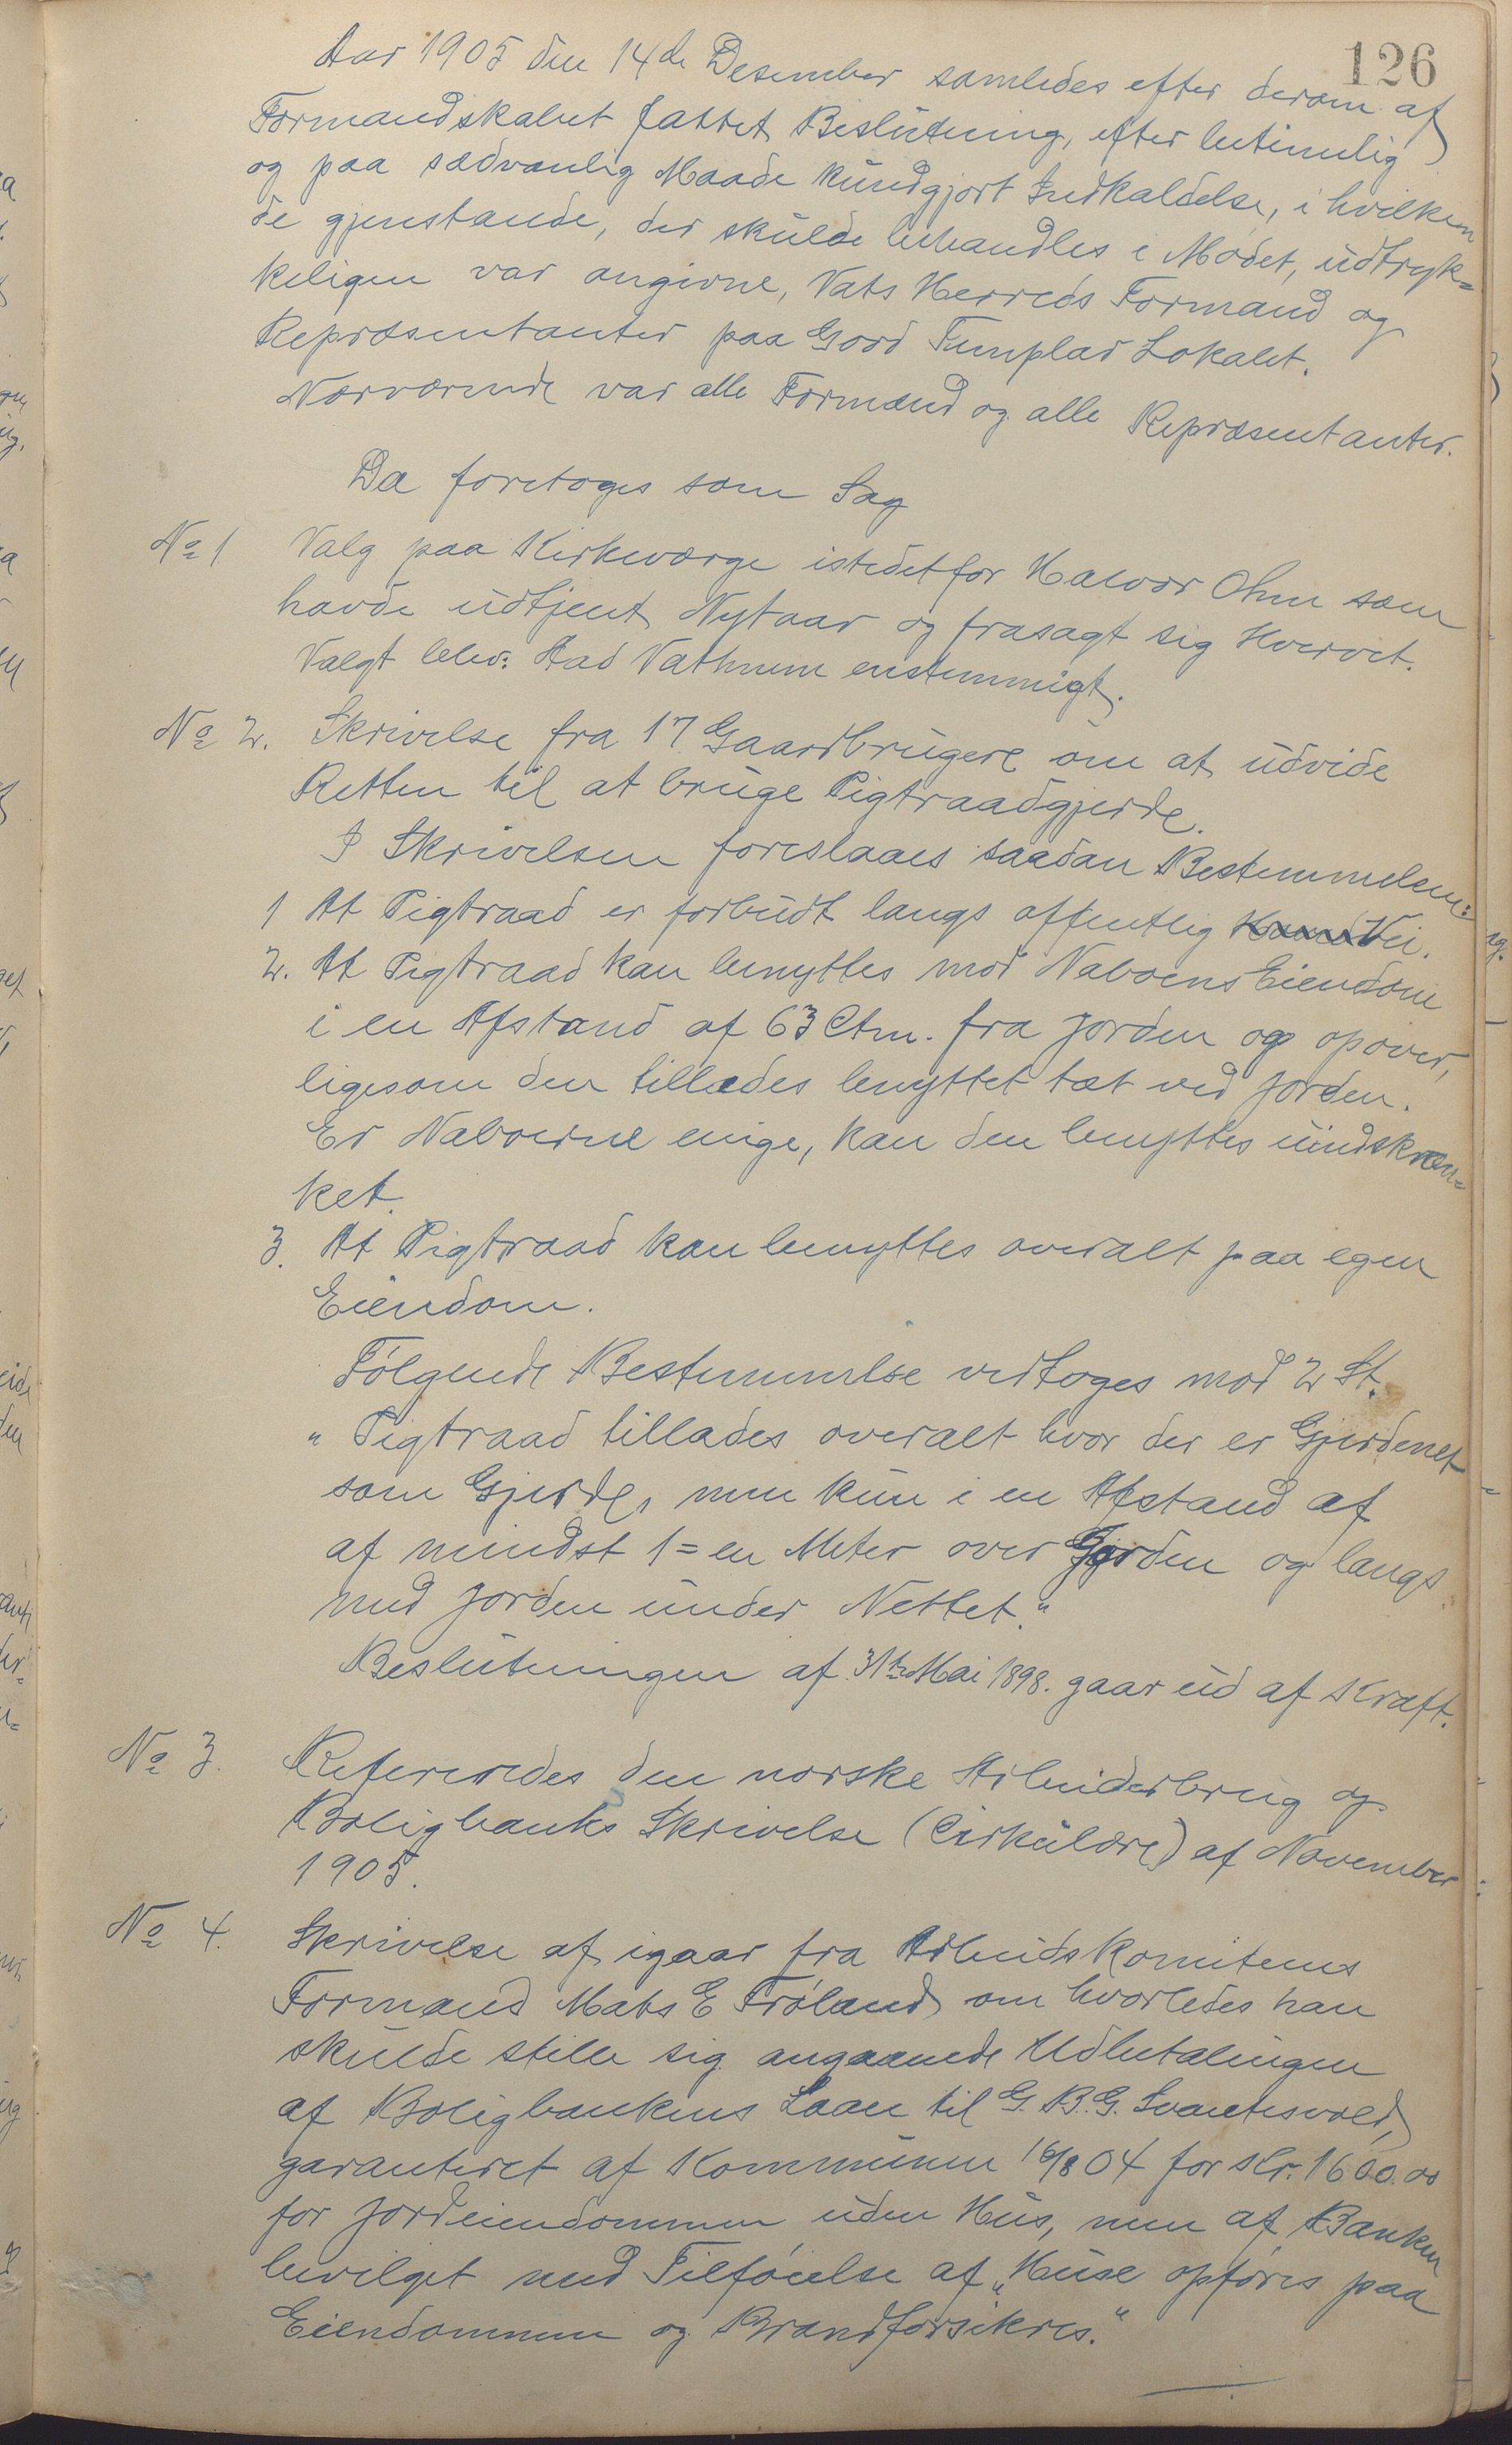 126
Aar 1905 den 14de Desember samledes efter derom af
Formandskabet fattet Beslutning, efter betimelig
og paa sædvanlig Maade kundgjort Indkaldelse, i hvilken
de gjenstande, der skulde behandles i Mødet, udtryk=
keligen var angivne, Vats Herreds Formænd og
Repræsentanter paa Good Templar Lokalet.
Nærværende var alle Formænd og alle Repræsentanter.
Da foretoges som Sag
No 1 Valg paa Kirkeværge istedetfor Halvor Ohm som
havde udtjent Nytaar og frasagt sig Hvervet.
Valgt blev: Aad Vathnem enstemmigt.
No 2. Skrivelse fra 17 Gaardbrugere om at udvide
Retten til at bruge Pigtraadgjerde.
I Skrivelsen foreslaaes saadan Bestemmelsen:
1 At Pigtraad er forbudt langs offentlig Vei.
2. At Pigtraad kan benyttes mod Naboens Eiendom
i en Afstand af 63 Ctm. fra Jorden og opover,
ligesom den tillades benyttet tæt ved Jorden.
Er Naboerne enige, kan den benyttes uindskræn=
ket.
3. At Pigtraad kan benyttes overalt paa egen
Eiendom.
Følgende Bestemmelse vedtoges mod 2 St.
" Pigtraad tillades overalt hvor der er Gjerdenet
som Gjerde, men kun i en Afstand af
af mindst 1 = en Meter over Jorden og langs
med Jorden under Nettet."
Beslutningen af 31te Mai 1898. gaar ud af Kraft.
No 3. Refereredes den norske Arbeiderbrug og
Boligbanks Skrivelse (Cirkulære) af November
1905.
No 4. Skrivelse af igaar fra Arbeidskomiteens
Formand Mats E Frøland om hvorledes han
skulde stille sig angaaende Udbetalingen
af Boligbankens Laan til G. B. G. Svantesvold,
garanteret af Kommunen 16/8 04 for Kr. 1600.00
for Jordeiendommen uden Hus, men af Banken
bevilget med Tilføielse af "Huse opføres paa
Eiendommen og Brandforsikres."